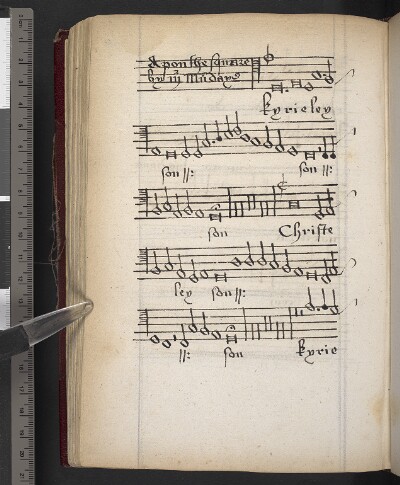 Apon the square
by mr Mūdaye
kyrieley
son :||: son :||:
son Christe
ley son :||:
:||: son kyrie